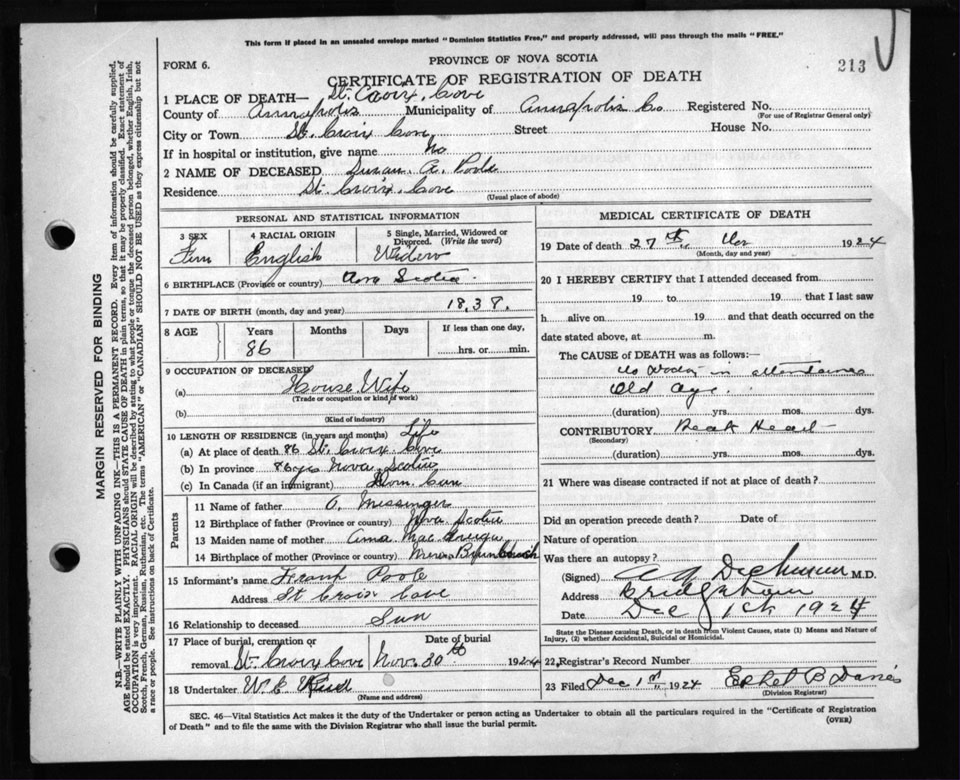 This form if placed in an unsealed envelope marked "Dominion Statistics Free," and properly addressed, will pass through the mails "FREE."
FORM 6.
PROVINCE OF NOVA SCOTIA
213
CERTIFICATE OF REGISTRATION OF DEATH
1 PLACE OF DEATH— St. Croix, Cove
County of Annapolis Municipality of Annapolis Co Registered No.
(For use of Registrar General only)
City or Town St. Croix Cove, Street House No.
If in hospital or institution, give name No
2 NAME OF DECEASED Susan. A. Poole
Residence St. Croix. Cove
(Usual place of abode)
PERSONAL AND STATISTICAL INFORMATION
3 SEX 4 RACIAL ORIGIN 5 Single, Married, Widowed or Divorced. (Write the word)
Fem English Widow
6 BIRTHPLACE (Province or country) Nova Scotia
7 DATE OF BIRTH (month, day and year) 1838.
8 AGE Years Months Days If less than one day,
86 hrs. or min.
9 OCCUPATION OF DECEASED
(a) House Wife
(Trade or occupation or kind of work)
(b)
(Kind of industry)
10 LENGTH OF RESIDENCE (in years and months) Life
(a) At place of death 86 St. Croix Cove
(b) In province 86 yrs Nova Scotia
(c) In Canada (if an immigrant) Dom. Can
Parents
11 Name of father O. Messinger
12 Birthplace of father (Province or country) Nova Scotia
13 Maiden name of mother Anna Mac
14 Birthplace of mother (Province or country)
15 Informant's name Frank Poole
Address St Croix Cove
16 Relationship to deceased Sun
17 Place of burial, cremation or removal St. Croix Cove Date of burial Nov. 30th 1924
18 Undertaker W. E.
(Name and address)
MEDICAL CERTIFICATE OF DEATH
19 Date of death 27th, Nov 1924
(Month, day and year)
20 I HEREBY CERTIFY that I attended deceased from
19 to 19 that I last saw
h alive on 19 and that death occurred on the
date stated above, at m.
The CAUSE OF DEATH was as follows:
No doctor in attendance
Old Age.
(duration) yrs. mos. dys.
CONTRIBUTORY Heart
(Secondary)
(duration) yrs. mos. dys.
21 Where was disease contracted if not at place of death?
Did an operation precede death? Date of
Nature of operation
Was there an autopsy?
(Signed) M.D.
Address Bridgetown
Date Dec 1st 1924
State the Disease causing Death, or in death from Violent Causes, state (1) Means and Nature of Injury, (2) whether Accidental, Suicidal or Homicidal.
22. Registrar's Record Number
23 Filed Dec 1st 1924 Ethel B Davies
(Division Registrar)
SEC. 46—Vital Statistics Act makes it the duty of the Undertaker or person acting as Undertaker to obtain all the particulars required in the "Certificate of Registration
of Death" and to file the same with the Division Registrar who shall issue the burial permit.
(OVER)
MARGIN RESERVED FOR BINDING
N.B.—WRITE PLAINLY WITH UNFADING INK—THIS IS A PERMANENT RECORD. Every item of information should be carefully supplied.
AGE should be stated EXACTLY. PHYSICIANS should STATE CAUSE OF DEATH in plain terms, so that it may be properly classified. Exact statement of
OCCUPATION is very important. RACIAL ORIGIN will be described by stating to what people or tongue the deceased person belonged, whether English, Irish,
Scotch, French, German, Russian, Ruthenian, etc. The terms "AMERICAN" or "CANADIAN" SHOULD NOT BE USED as they express citizenship but not
a race or people. See instructions on back of Certificate.